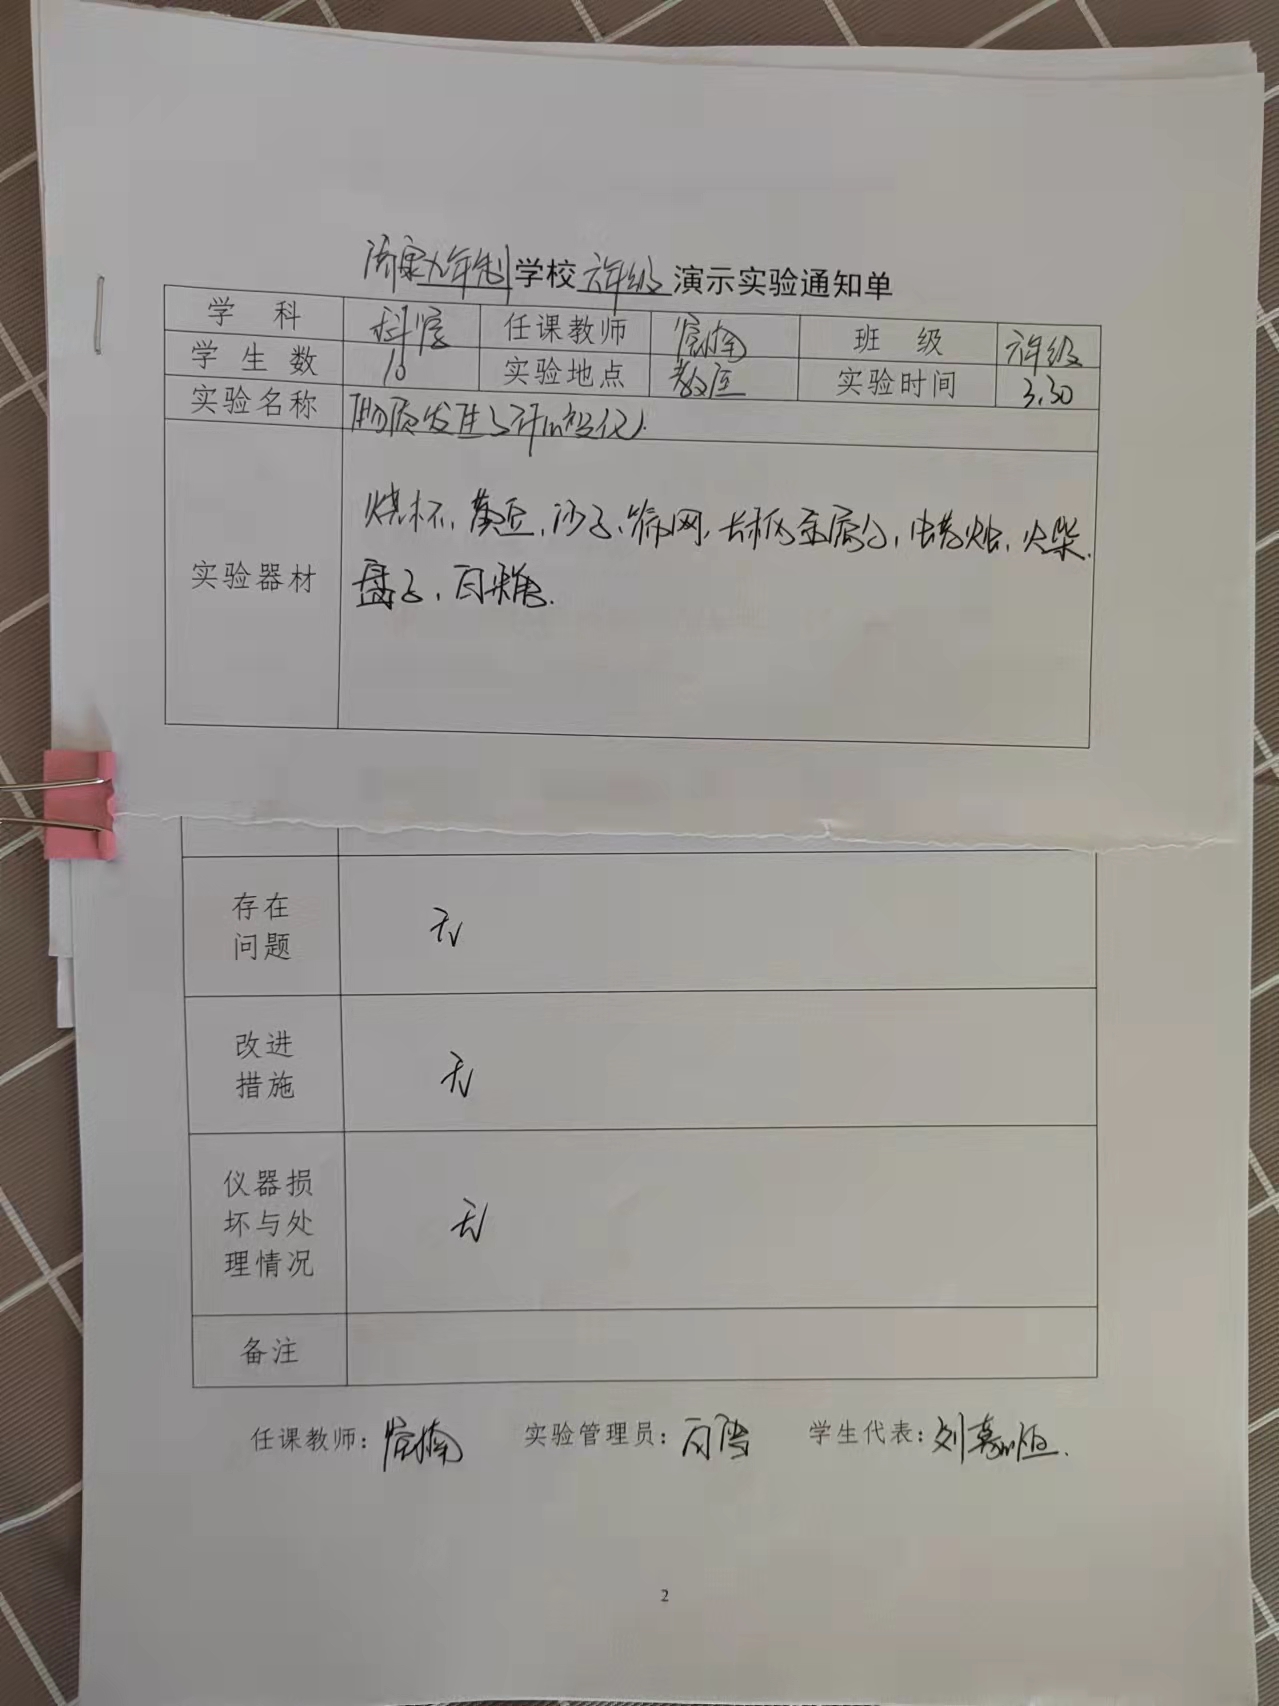 济康九年制学校六年级演示实验通知单
学 科 科学 任课教师 班 级 六年级
学 生 数 实验地点 教室 实验时间 3.30
实验名称 物质发生了什么变化
实验器材 烧杯、黄豆、沙子、筛网、长柄金属勺、蜡烛、火柴、
盘子、白糖.
存在
问题
无
改进
措施
无
仪器损
坏与处
理情况
无
备注
任课教师: 实验管理员: 学生代表:刘
2